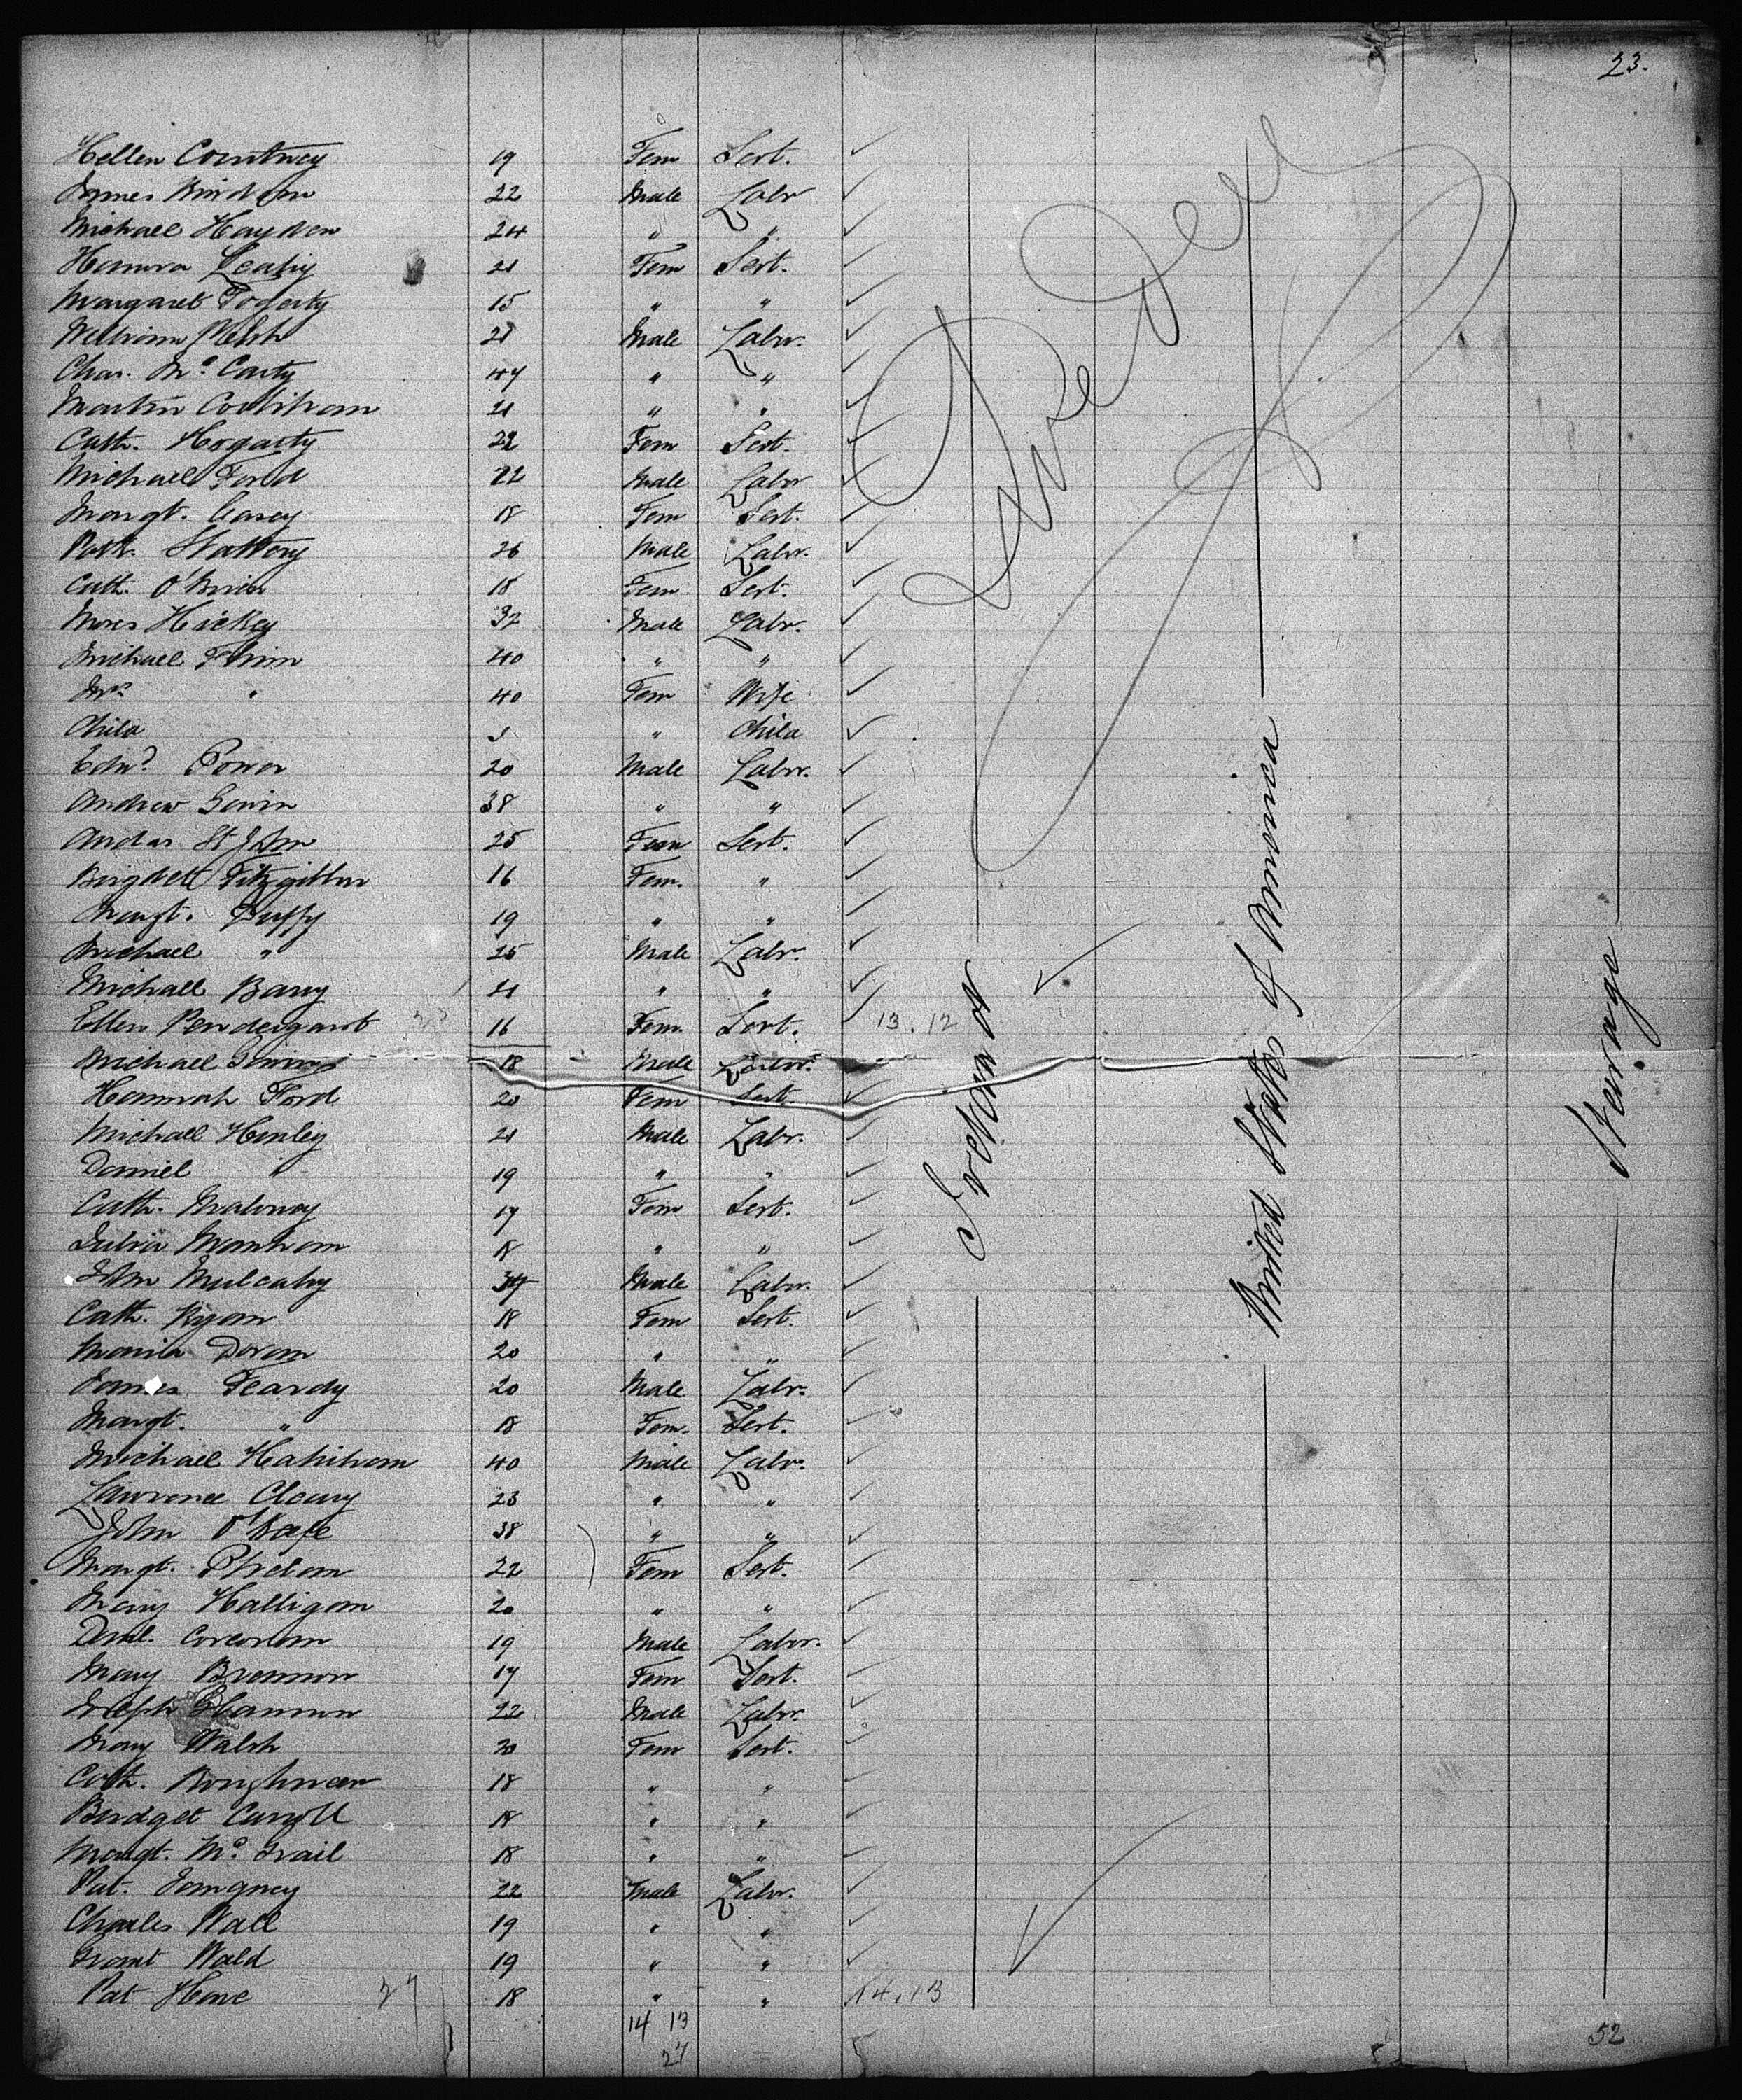 23.
Hellen Courtney 19 Fem Sert. ✓
James 22 Male Labr ✓
Michael Hayden 24 " " ✓
Honora Leahy 21 Fem Sert. ✓
Margaret Fogerty 15 " " ✓
William Welsh 21 Male Labr. ✓
Chas. Mc Carty 47 " " ✓
Martin 21 " " ✓
Cath. Hogarty 22 Fem Sert. ✓
Michael Ford 22 Male Labr ✓
Margt. Casey 18 Fem Sert. ✓
Patk. Slattery 26 Male Labr. ✓
Cath. O'Brien 18 Fem Sert. ✓
Hickey 32 Male Labr. ✓
Michael 40 " " ✓
Mrs " 40 Fem Wife ✓
Child " Child ✓
Edwd. Power 20 Male Labr. ✓
Andrew 38 " " ✓
St John 25 Fem Sert. ✓
Brigdett Fitzgibbon 16 Fem. " ✓
Margt. Duffy 19 " " ✓
Michael " 25 Male Labr. ✓
Michael Barry 21 " " ✓
Ellen Pendergast 16 Fem. Sert. ✓ 13.12
Michael 18 Male Labr.
Hannah Ford 20 Fem Sert. ✓
Michael Henley 21 Male Labr. ✓
Daniel " 19 " " ✓
Cath. Maloney 17 Fem Sert. ✓
Julia 18 " " ✓
John Mulcahy 34 Male Labr. ✓
Cath. Ryan 18 Fem Sert. ✓
Maria Doran 20 " " ✓
James Feardy 20 Male Labr. ✓
Margt. " 18 Fem. Sert. ✓
Michael 40 Male Labr. ✓
Lawrence Cleary 23 " " ✓
John O'Keefe 38 " " ✓
Margt. Phelan 22 Fem Sert. ✓
Mary Halligan 20 " " ✓
Danl. Corcoran 19 Male Labr. ✓
Mary Brennan 17 Fem Sert. ✓
Joseph 22 Male Labr. ✓
Mary Walsh 20 Fem Sert. ✓
Cath. 18 " " ✓
Bridget Carroll 18 " " ✓
Margt. Mc Grail 18 " " ✓
Pat. 22 Male Labr. ✓
Charles Wall 19 " " ✓
Grant Wald 19 " " ✓
Pat Hare 27 18 " " 14.13
14 13
27
52
Ireland
United States of America
Steerage